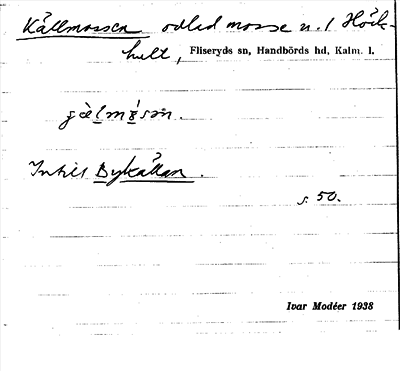 Källmossen odlad mosse n. 1 Hök-
hult, Fliseryds sn, Handbörds hd, Kalm. l.
Intill Bykällan.
s. 50.
Ivar Modéer 1938